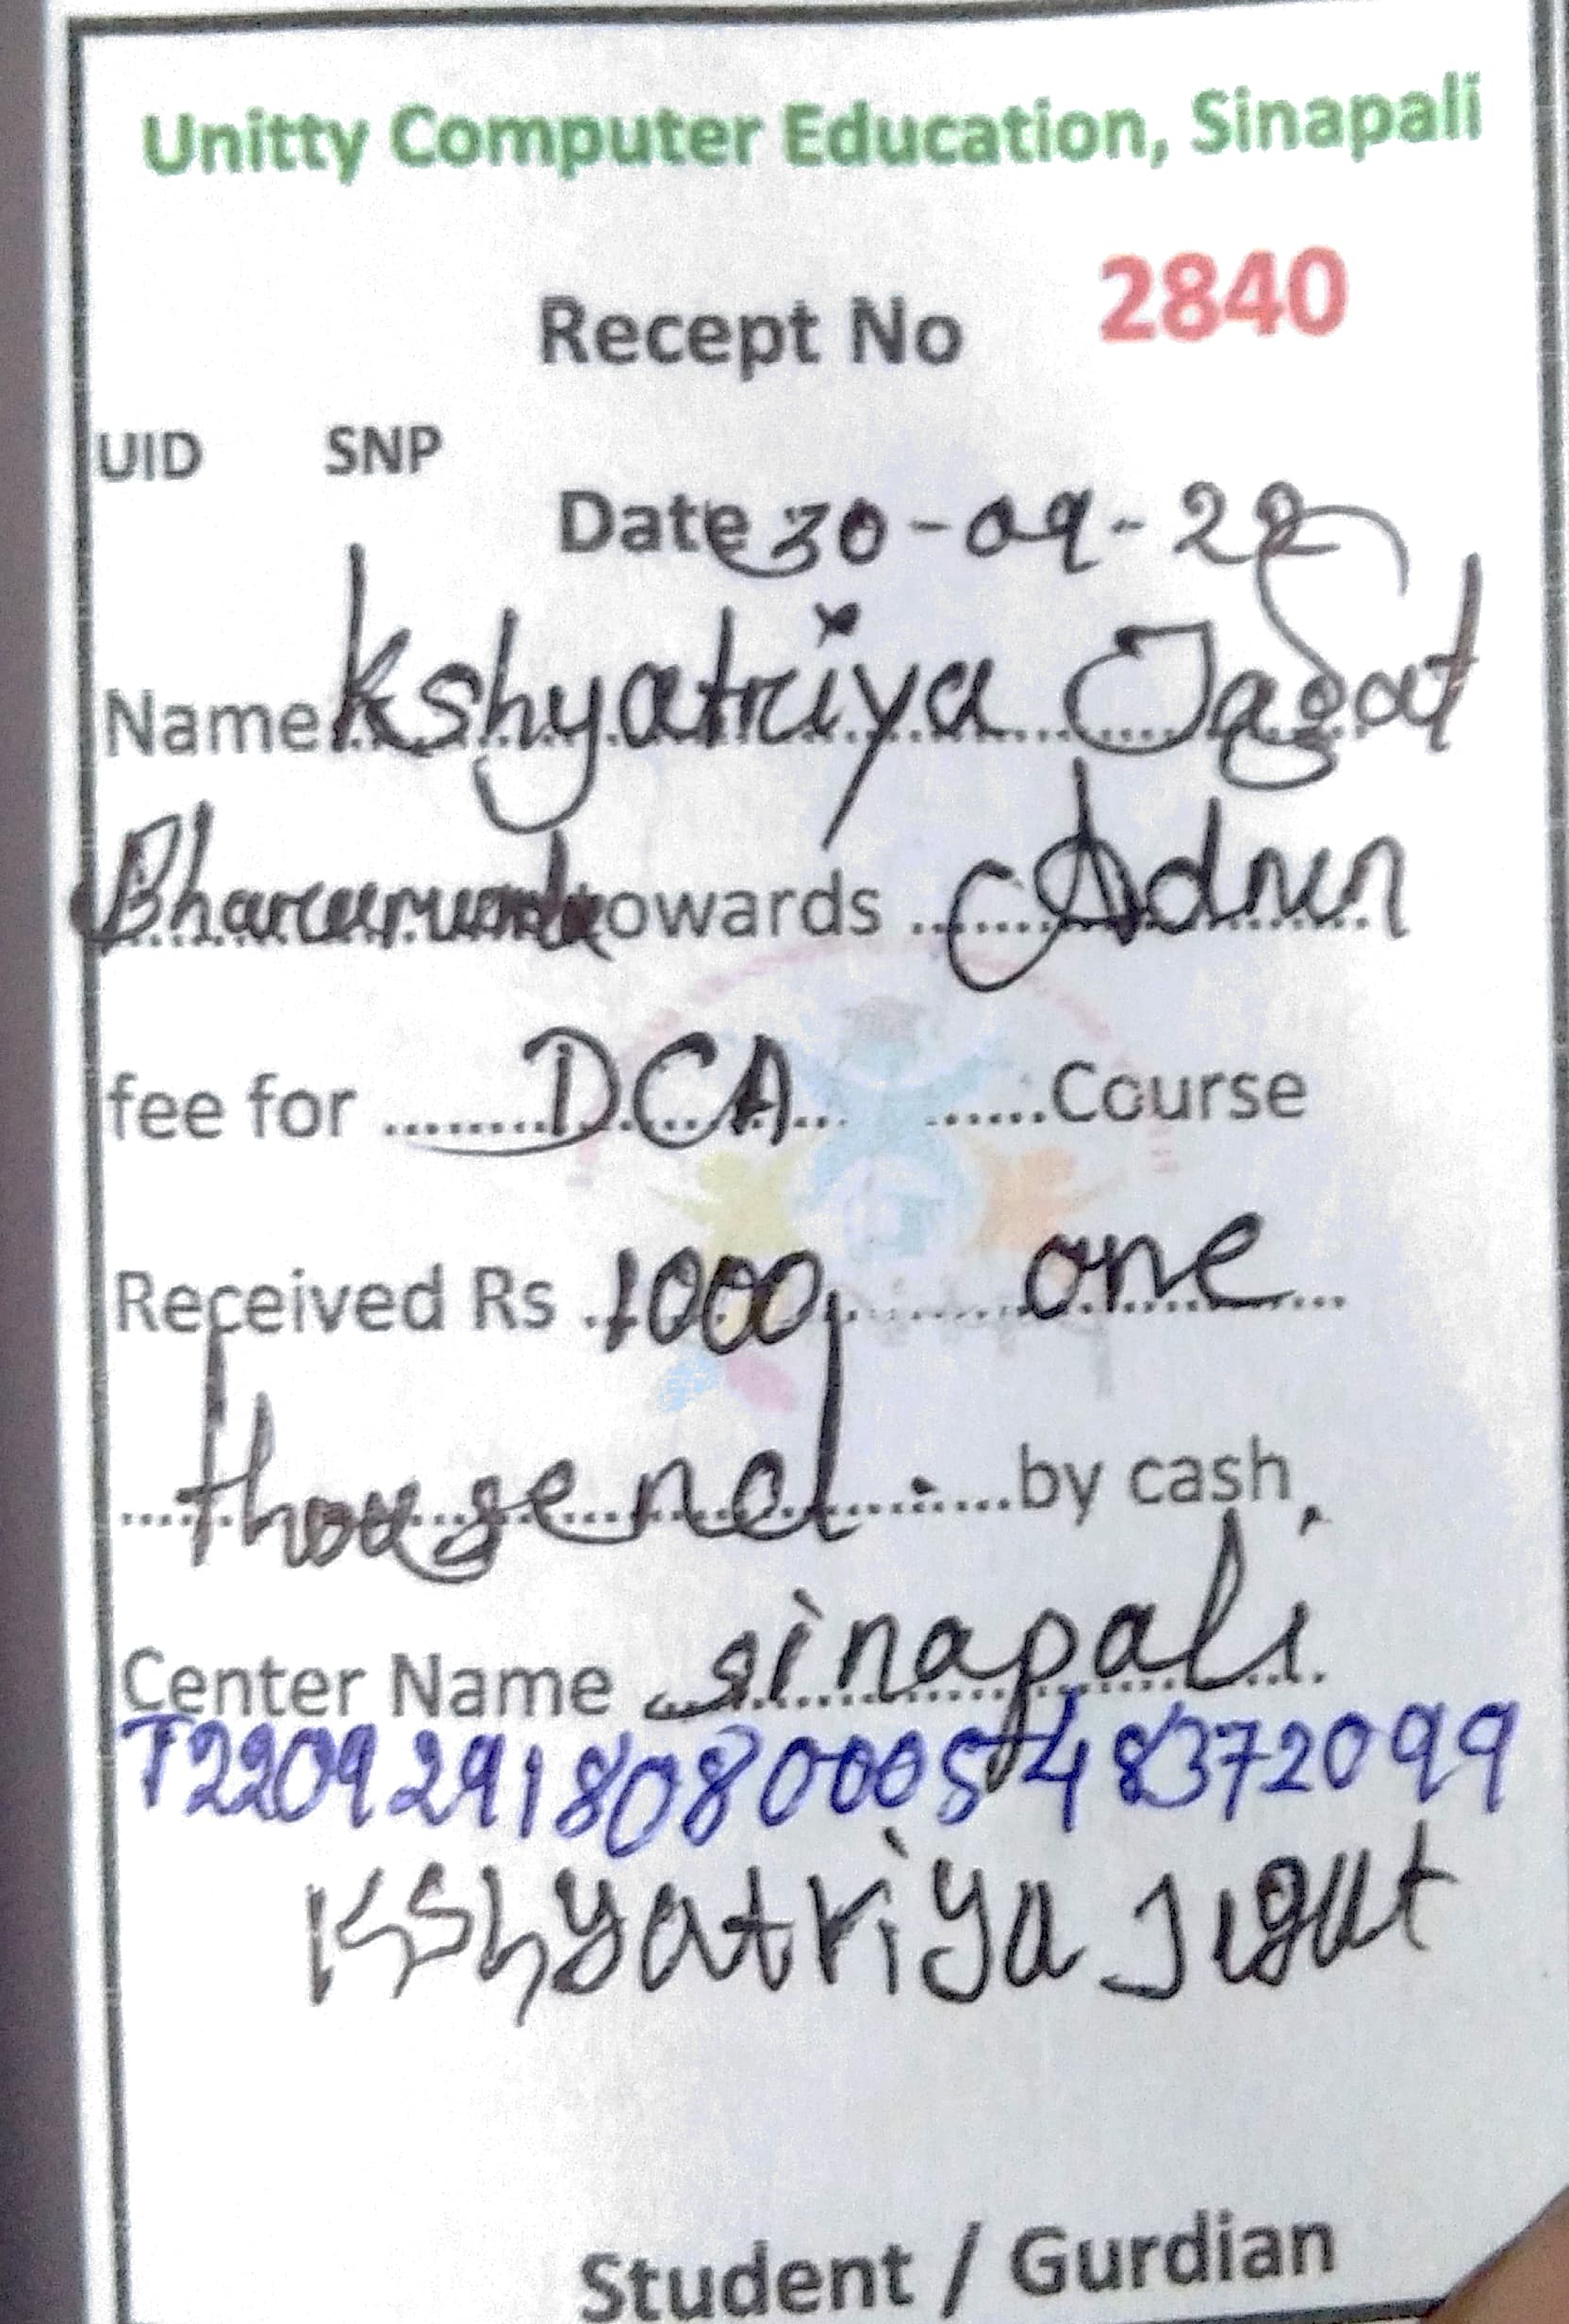 Unitty Computer Education, Sinapali
Recept No 2840
UID SNP
Date 30-09-22
Name Kshyatriya Jagat
towards Admn
fee for DCA Course
Received Rs 1000/ one
thousend by cash,
Center Name sinapali
T220929180808000548372099
Kshyatriya Jagat
Student / Gurdian